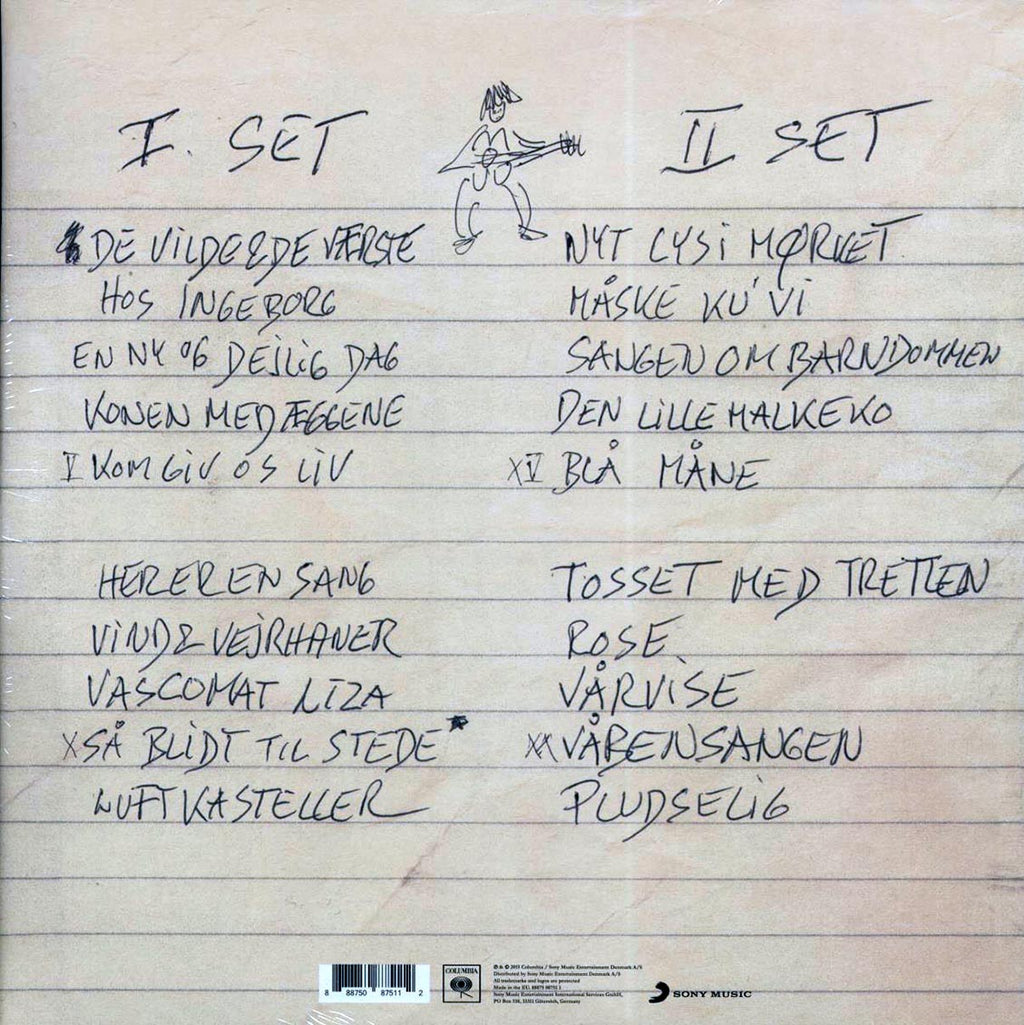 I. SET
DE VILDE & DE VÆRSTE
HOS INGEBORG
EN NY OG DEJLIG DAG
KONEN MED ÆGGENE
V KOM GIV OS LIV
HER ER EN SANG
VIND & VEJRHANER
VASCOMAT LIZA
X SÅ BLIDT TIL STEDE *
LUFTKASTELLER
II SET
NYT LYS i MØRKET
MÅSKE KU' VI
SANGEN OM BARNDOMMEN
DEN LILLE MALKEKO
XV BLÅ MÅNE
TOSSET MED TRETTEN
ROSE
VÅRVISE
XX VÅBENSANGEN
PLUDSELIG
8 88750 87511 2
COLUMBIA
℗ & © 2015 Columbia / Sony Music Entertainment Denmark A/S
Distributed by Sony Music Entertainment Denmark A/S
All trademarks and logos are protected
Made in the EU. 88875 08751 1
Sony Music Entertainment International Services GmbH,
PO Box 510, 33311 Gütersloh, Germany
SONY MUSIC